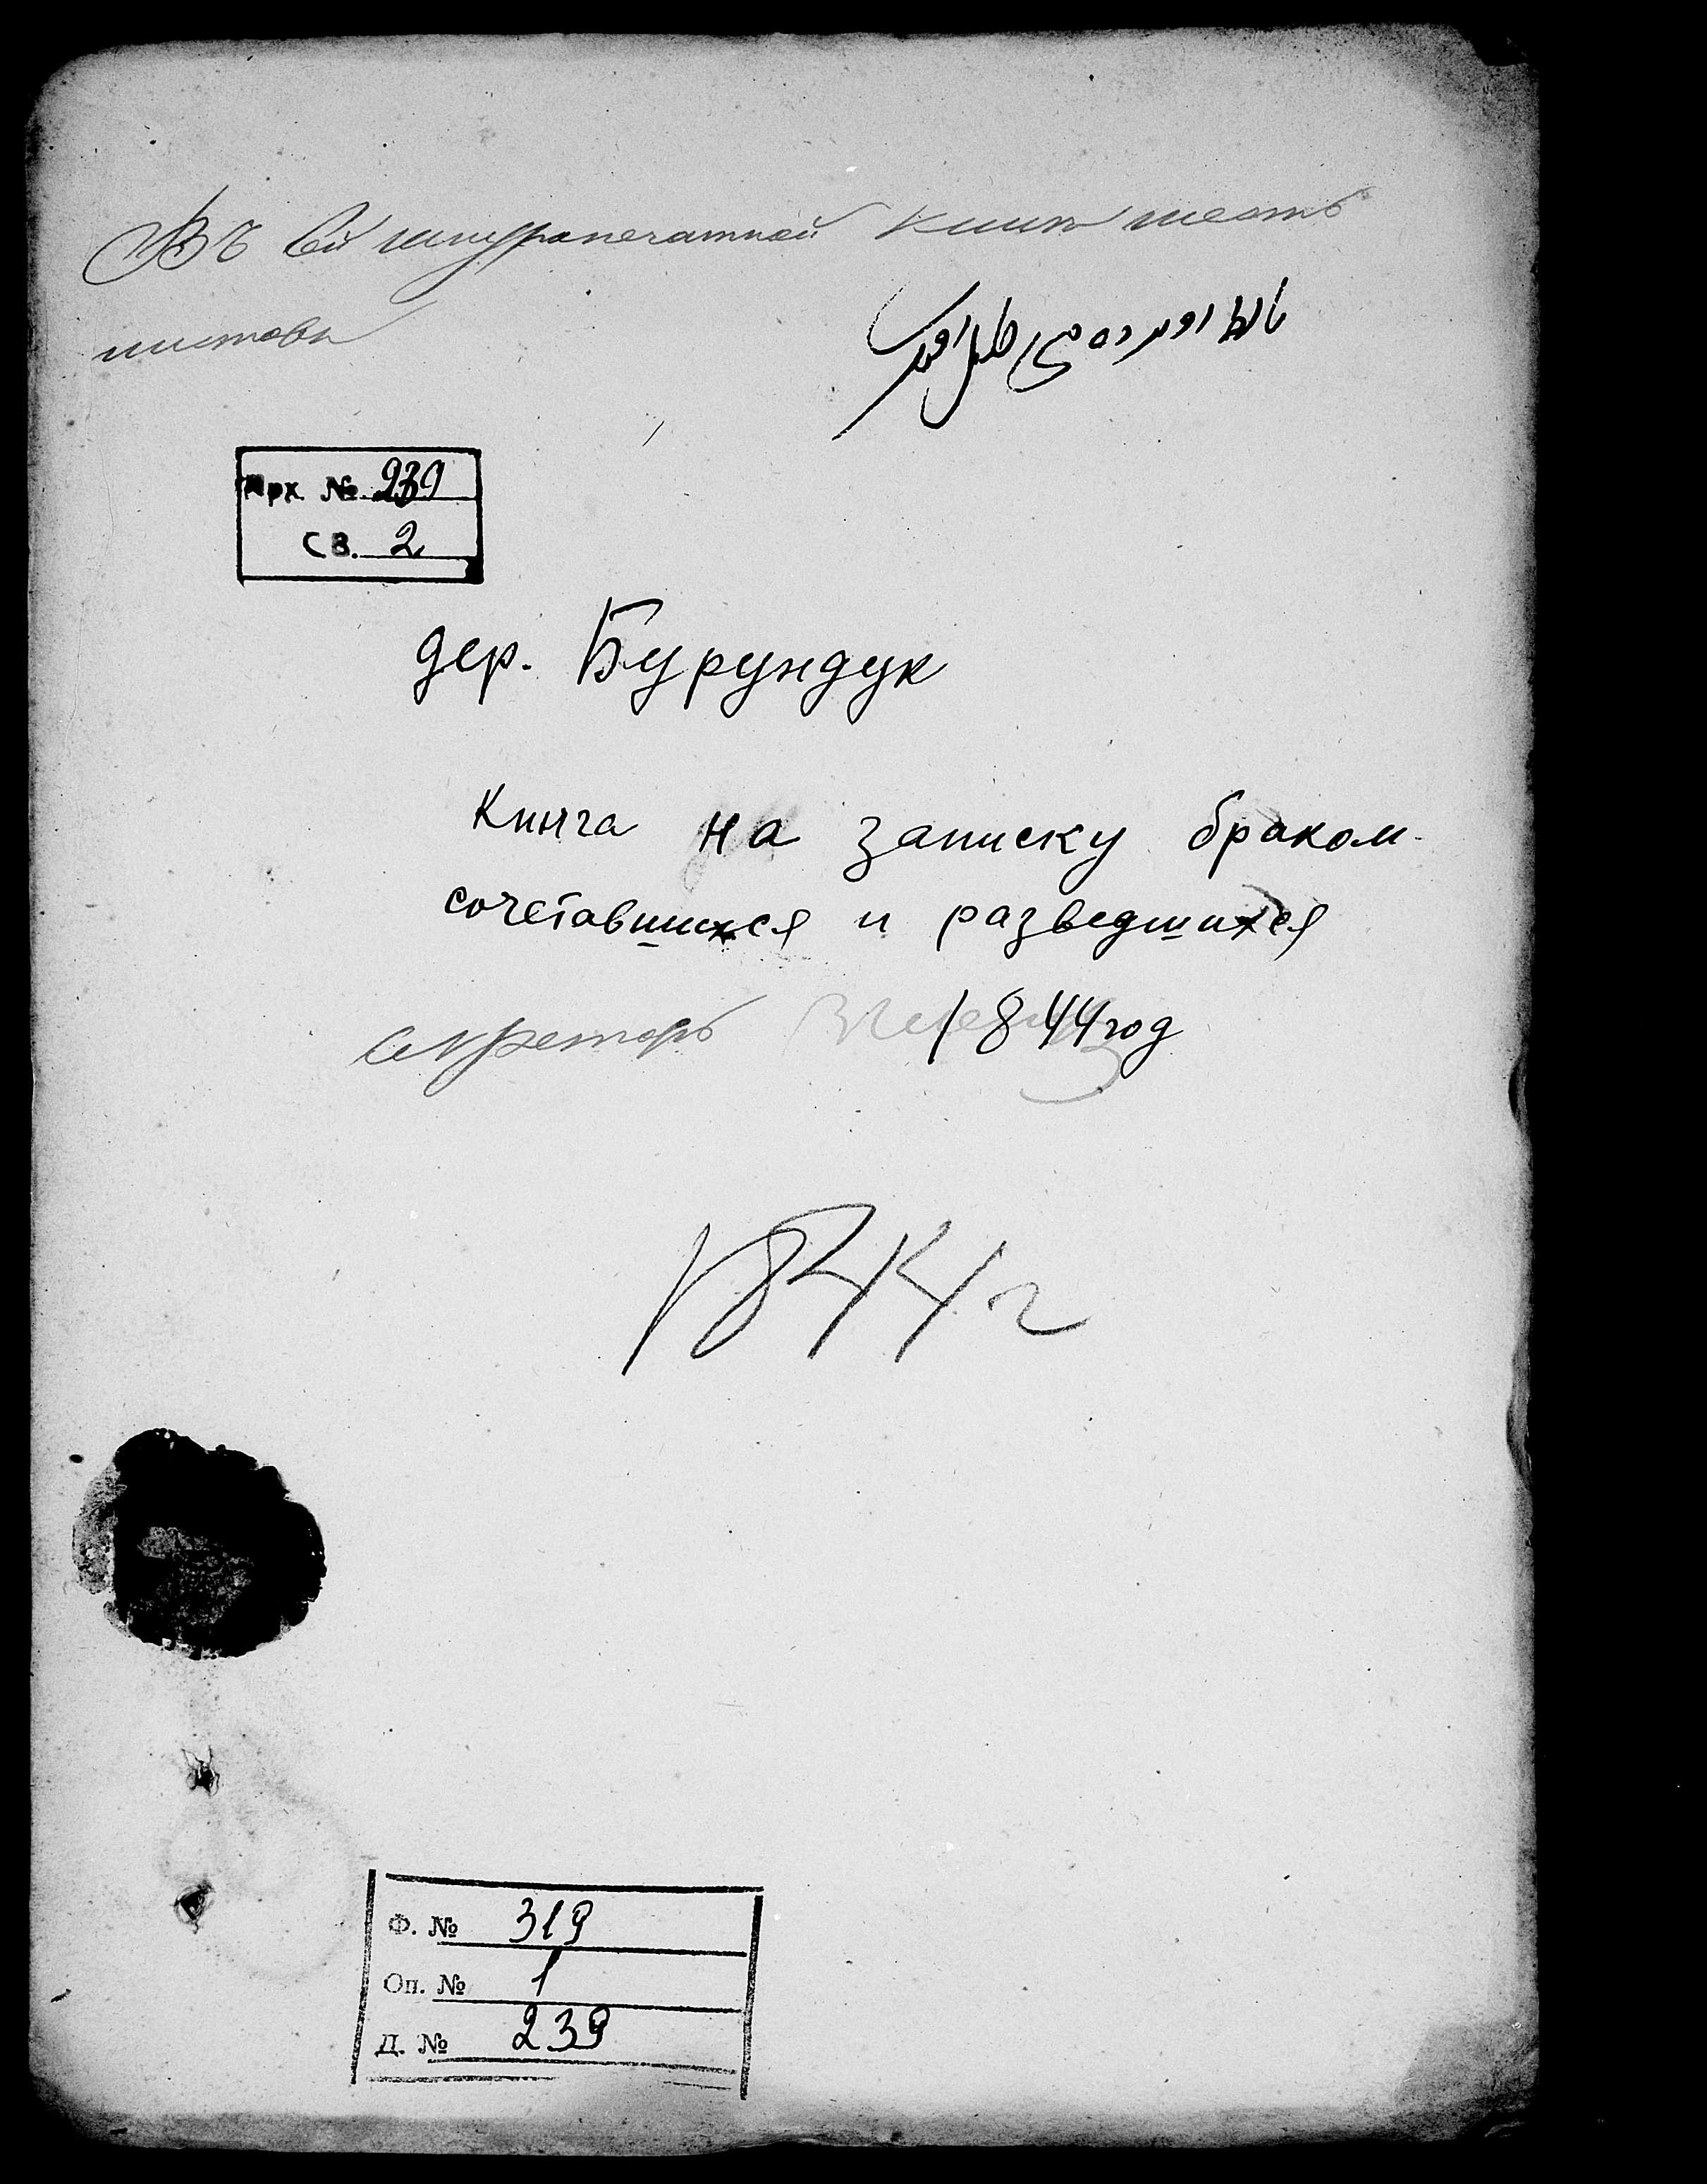 Въ сей шнуропечатной книге шесть
листовъ
Арх. № 239
св. 2
дер. Бурундук
Книга на записку браком
сочетавшихся и разведшихся
Секретарь
1844 год
1844 г
Ф. № 319
Оп. № 1
Д. № 239